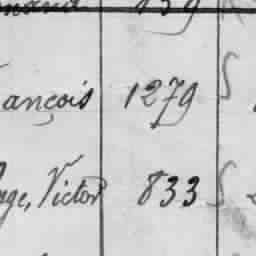 ançois 1279 S
ge, Victor 833 S